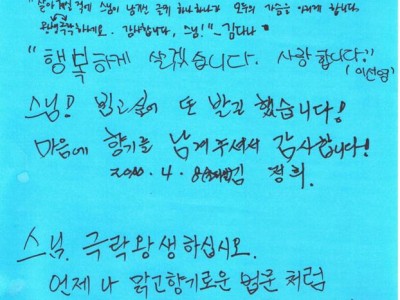 "살아계실 적에 스님이 남겨진 글귀 하나하나가 모두의 가슴을 아리게 합니다.
왕생극락하세요. 감사합니다, 스님!" - 김다나
"행복하게 살겠습니다. 사랑합니다." (이선영)
스님! 믿고 싶어 또 발길 했습니다!
마음에 향기를 남겨주셔서 감사합니다!
2010. 4. 8 김 정희.
스님. 극락왕생하십시오.
언제나 맑고향기로운 법문처럼